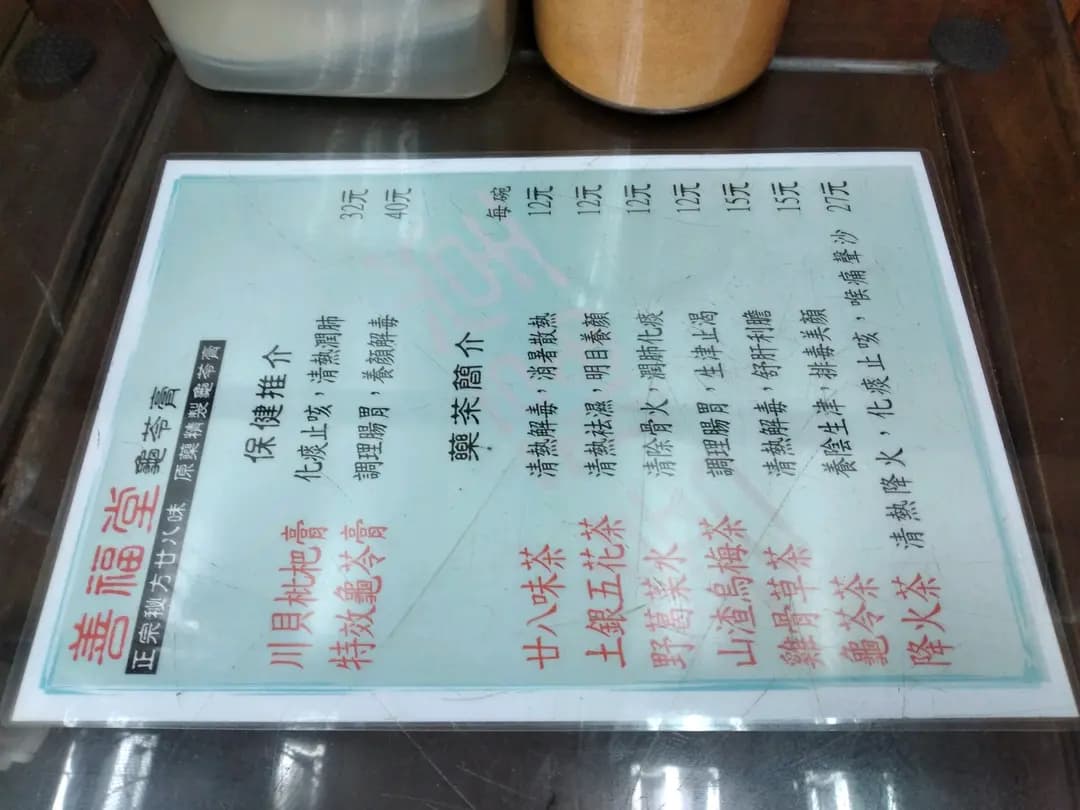 善福堂 龜苓膏
正宗秘方廿八味 原藥精製龜苓膏
保健推介
川貝枇杷膏 化痰止咳，清熱潤肺 32元
特效龜苓膏 調理腸胃，養顏解毒 40元
藥茶簡介 每碗
廿八味茶 清熱解毒，消暑散熱 12元
土銀五花茶 清熱祛濕，明目養顏 12元
野葛菜水 清除骨火，潤肺化痰 12元
山渣烏梅茶 調理腸胃，生津止渴 12元
雞骨草茶 清熱解毒，舒肝利膽 15元
龜苓茶 養陰生津，排毒美顏 15元
降火茶 清熱降火，化痰止咳，喉痛聲沙 27元